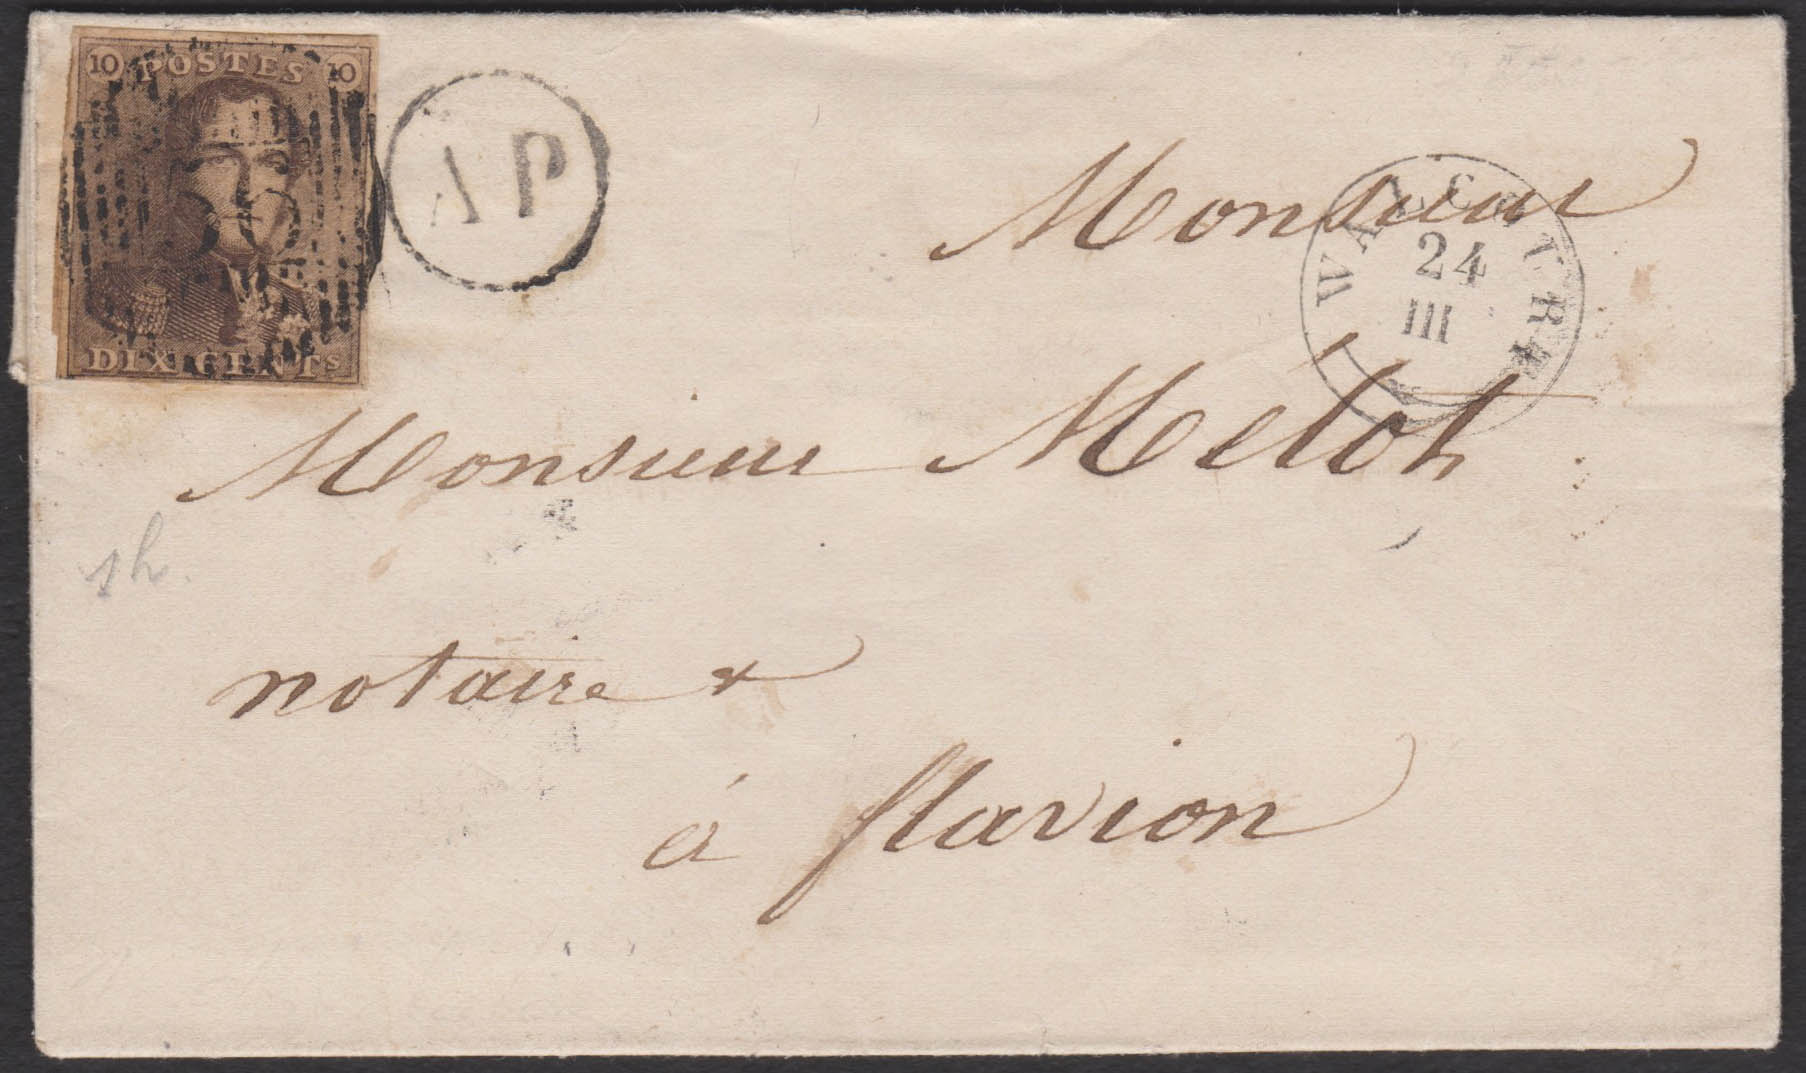 10 POSTES 10
DIX CENTS
A P
WALCOURT
24
III
Monsieur
Monsieur Melot
notaire
à flavion
sh.